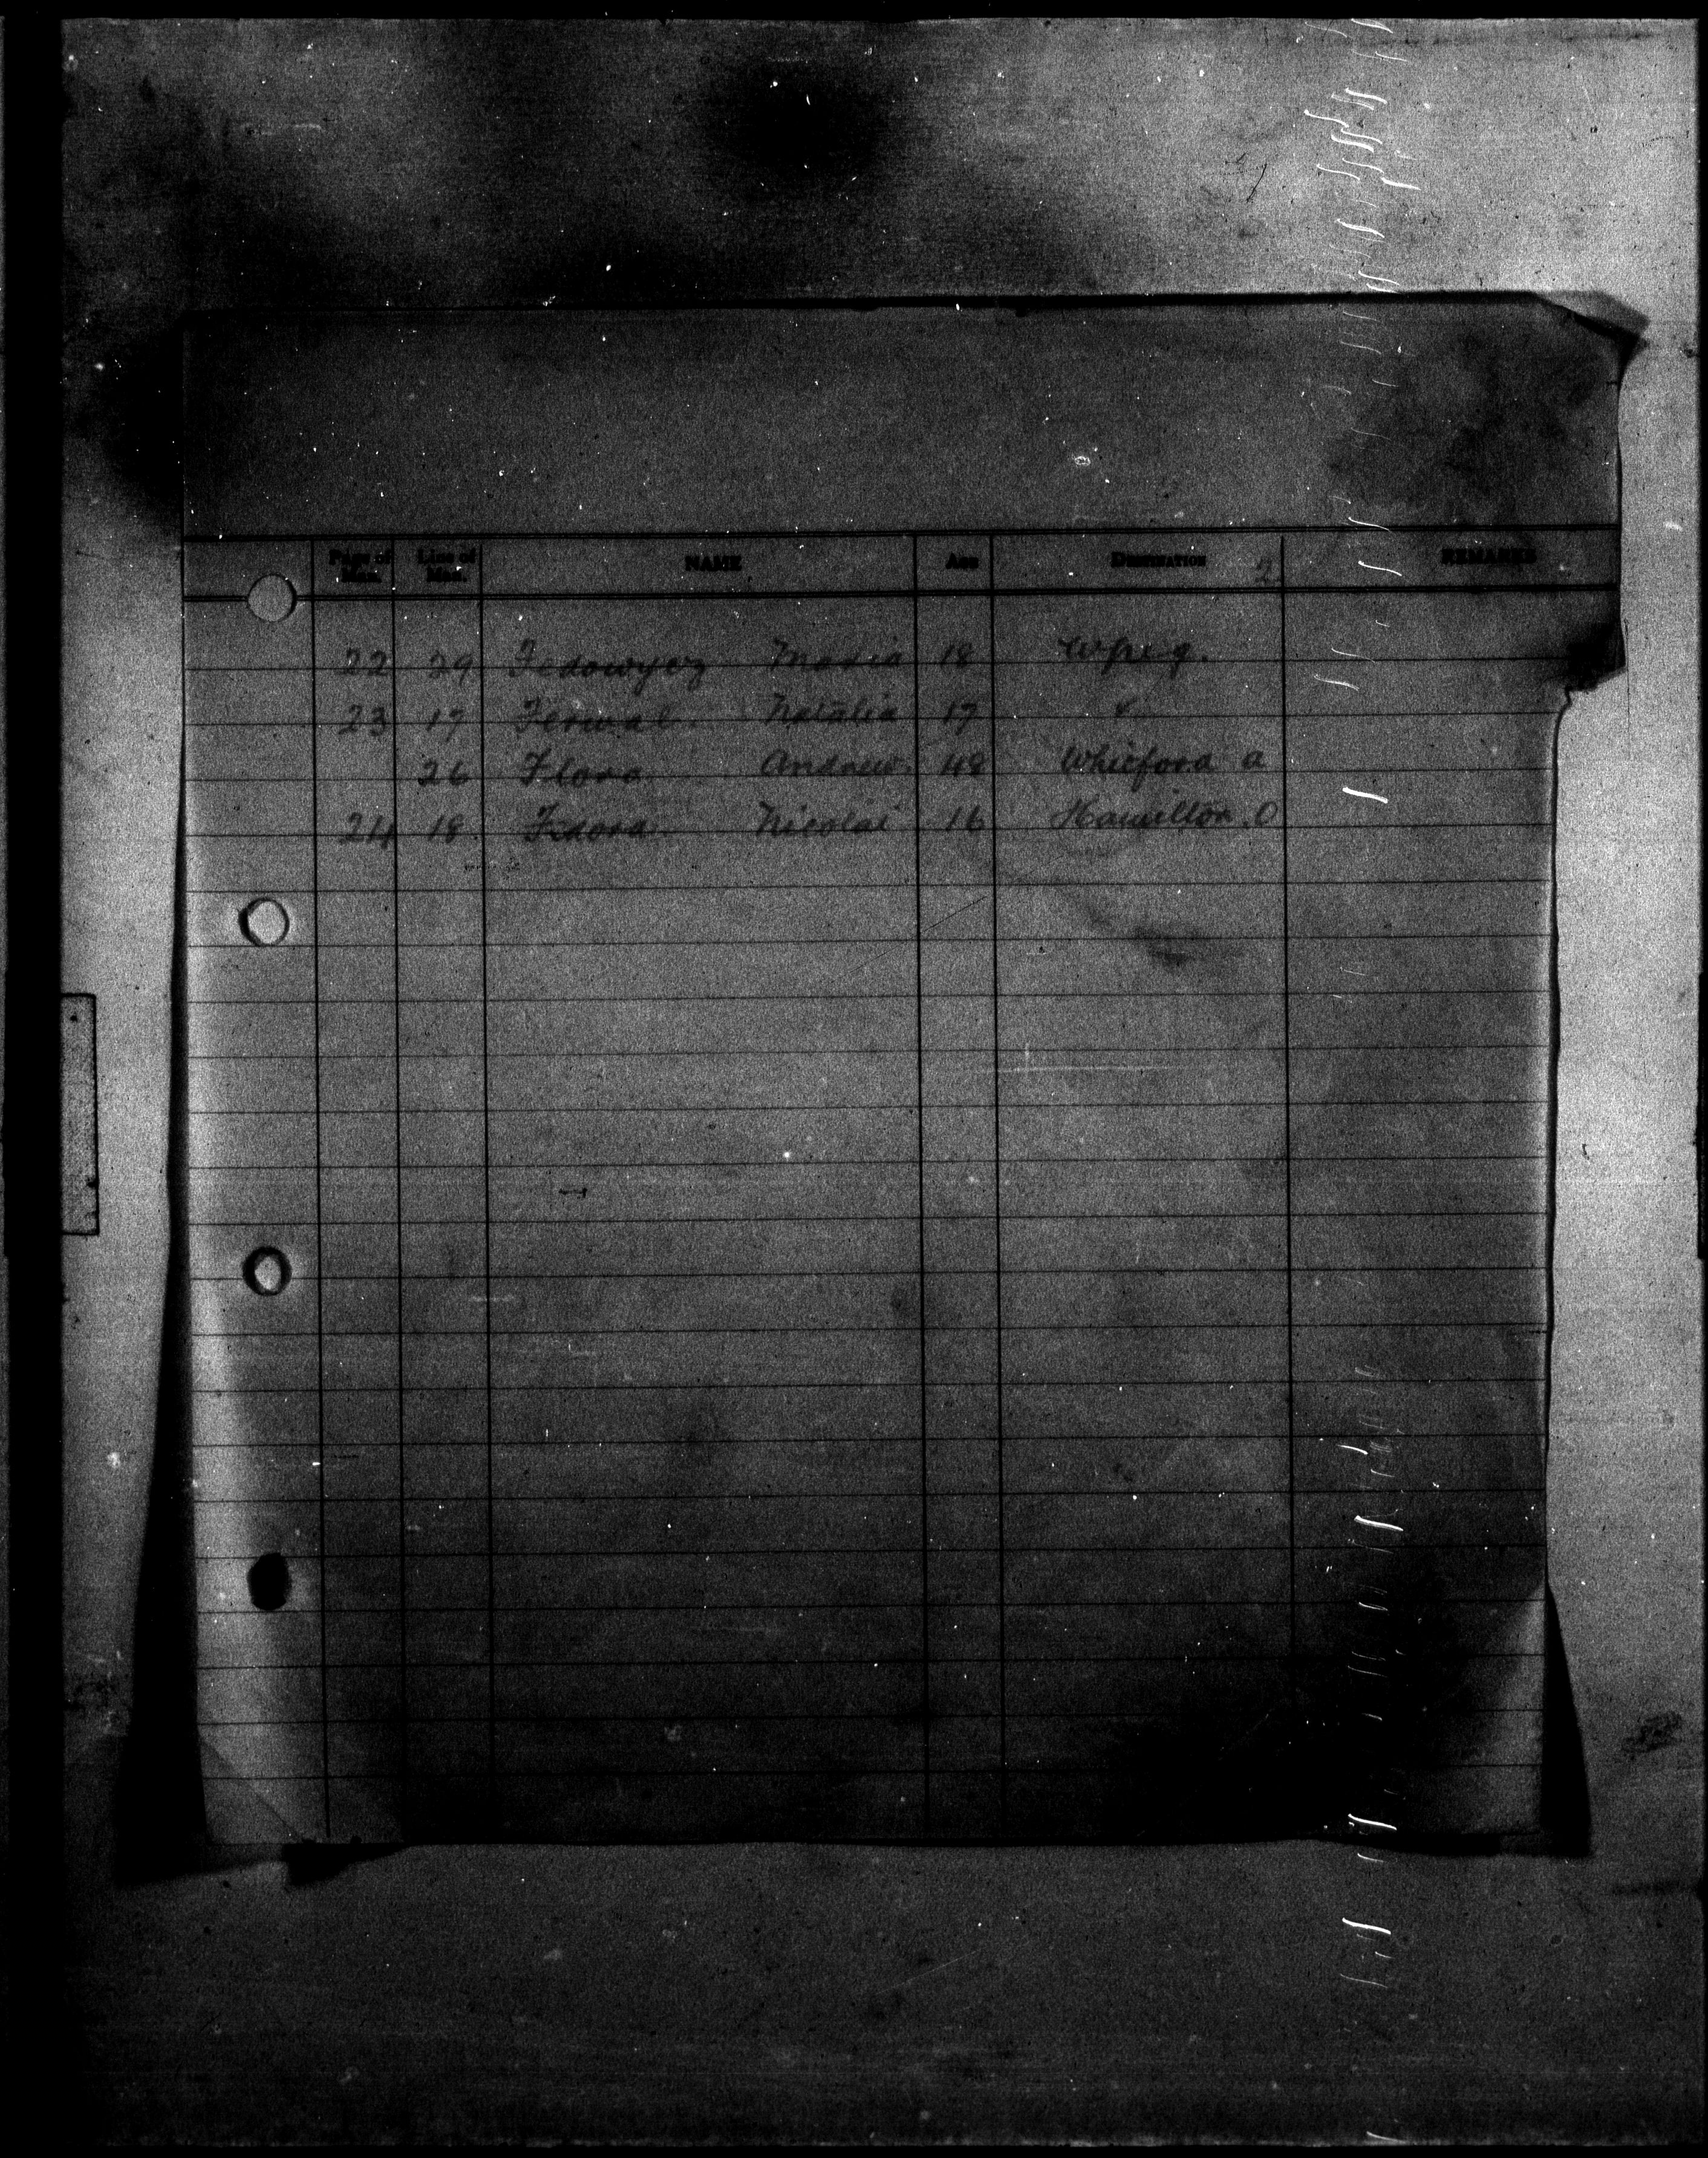 Page of Man. Line of Man. NAME Age DESTINATION 2 REMARKS
22 29 Fedowycz Maria 18 Wpeg.
23 17 Natalia 17 "
26 Flora Andrew 48 Whitford a
24 18 Fedora Nicolai 16 Hamilton O